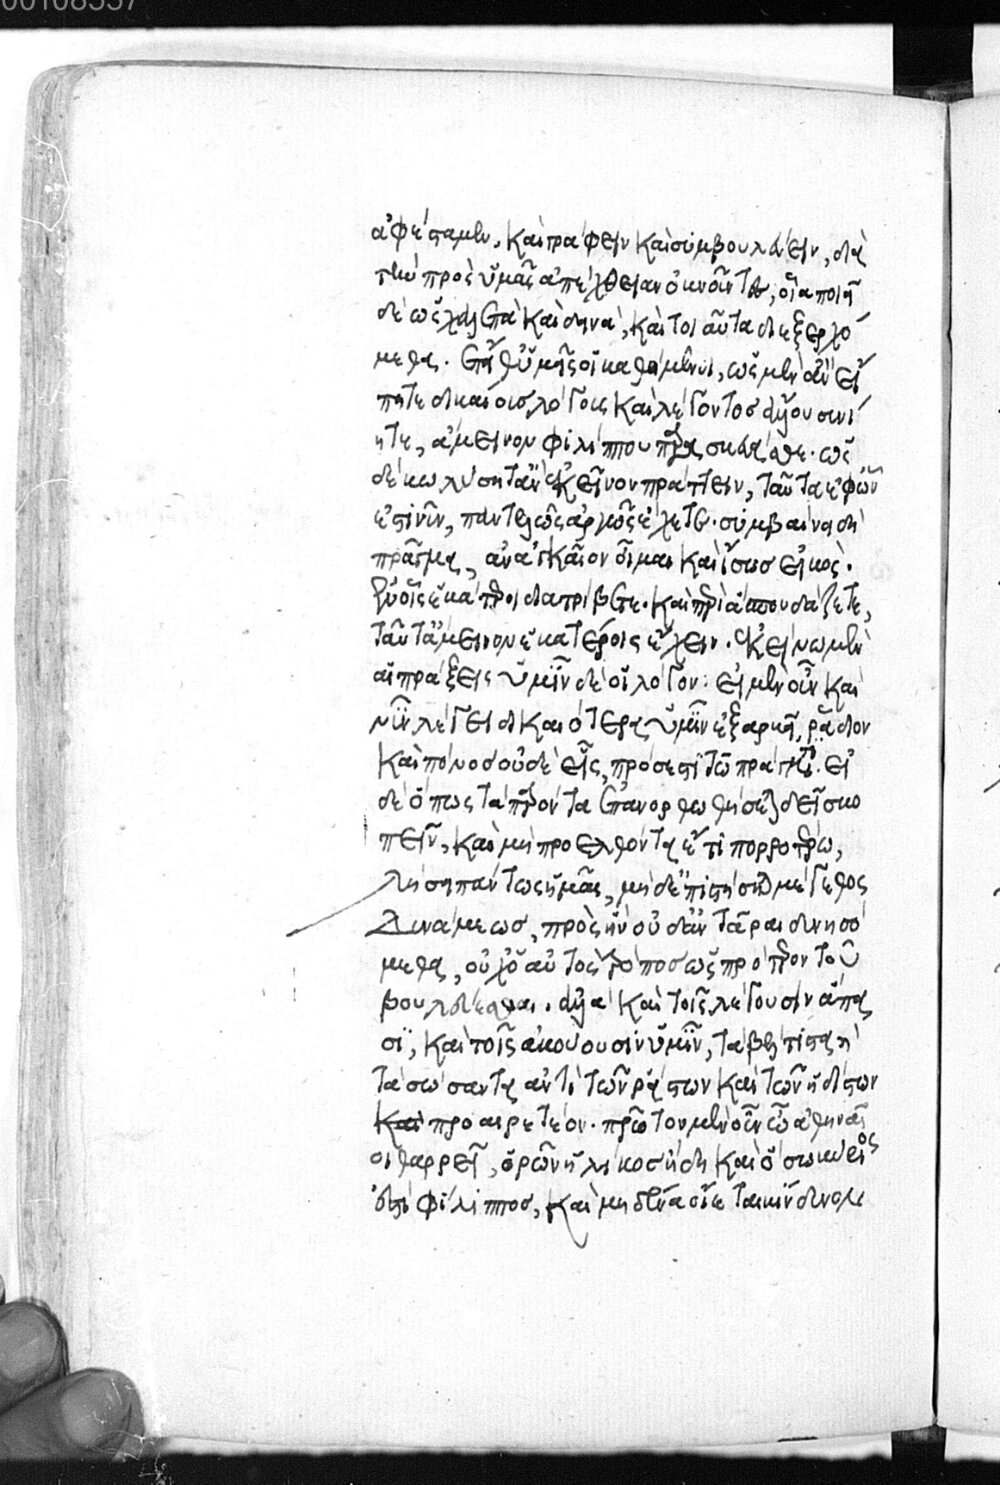 00108557
ἀφέσταμεν, καὶ γράφειν καὶ συμβουλεύειν, διὰ
τὴν πρὸς ὑμᾶς ἀπέχθειαν ὀκνοῦντες, οἷα ποιεῖ
δὲ ὡς χαλεπὰ καὶ δεινὰ, καὶ τοιαῦτα διεξερχό
μεθα. ἔπειθ' ὑμεῖς οἱ καθήμενοι, ὡς μὲν ἂν εἴ
ποιτε δικαίους λόγους καὶ λέγοντος ἄλλου συνί
ητε, ἄμεινον φιλίππου παρασκεύασθε. ὡς
δὲ κωλύσητ' ἂν ἐκεῖνον πράττειν, ταῦτα ἐφ' ὧν
ἐστὶ νῦν, παντελῶς ἀργῶς ἔχετε. συμβαίνει δὴ
πρᾶγμα, ἀναγκαῖον οἶμαι καὶ ἴσως εἰκός.
ἐν οἷς ἑκάτεροι διατρίβετε. καὶ περὶ ἃ σπουδάζετε,
ταῦτ' ἄμεινον ἑκατέροις ἔχειν. ἐκείνω μὲν
αἱ πράξεις ὑμῖν δὲ οἱ λόγοι: εἰ μὲν οὖν καὶ
νῦν λέγειν δικαιότερα ὑμῖν ἐξαρκεῖ, ῥάδιον
καὶ πόνος οὐδὲ εἷς, πρόσεστι τῶ πράγματι. εἰ
δὲ ὅπως τὰ παρόντα ἐπανορθωθήσεται δεῖ σκο
πεῖν, καὶ μὴ προελθόντα ἔτι πορρωτέρω,
λήσῃ πάντως ἡμᾶς, μηδ' ἐπιστήσεται μέγεθος
δυνάμεως, πρὸς ἣν οὐδ' ἀντᾶραι δυνησό
μεθα, οὐχ ὁ αὐτὸς τρόπος ὥσπερ πρότερον τοῦ
βουλεύεσθαι. ἀλλὰ καὶ τοῖς λέγουσιν ἅπα
σι, καὶ τοῖς ἀκούουσιν ὑμῖν, τὰ βέλτιστα κὴ
τὰ σώσαντα ἀντὶ τῶν ῥάστων καὶ τῶν ἡδίστων
καὶ προαιρετέον. πρῶτον μὲν οὖν ὦ ἀθηναῖ
οι θαρρεῖ, ὁρῶν ἡλίκος ἤδη καὶ ὅσων κύριος
ἐστὶ φίλιππος, καὶ μηδένα οἴεται κίνδυνον